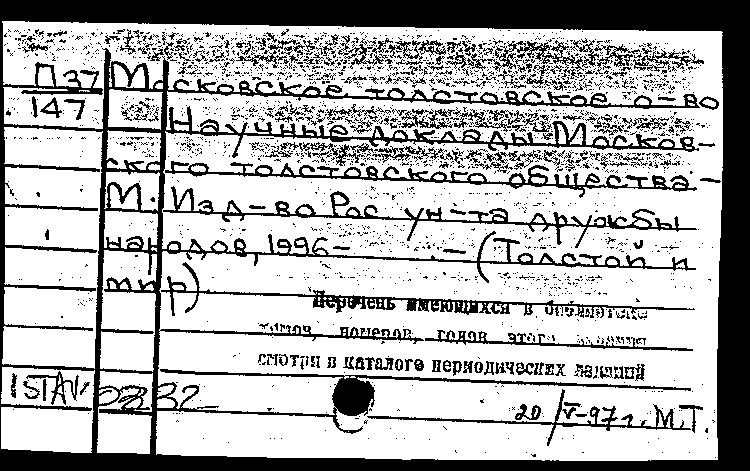 П37 Московское толстовское о-во
147 Научные доклады Москов-
ского толстовского общества. -
М. Изд-во Рос ун-та дружбы
народов, 1996 - . - (Толстой и
мир)
Перечень имеющихся в библиотеке
томов, номеров, годов этого издания
смотри в каталоге периодических изданий
20/V-97г. М.Т.